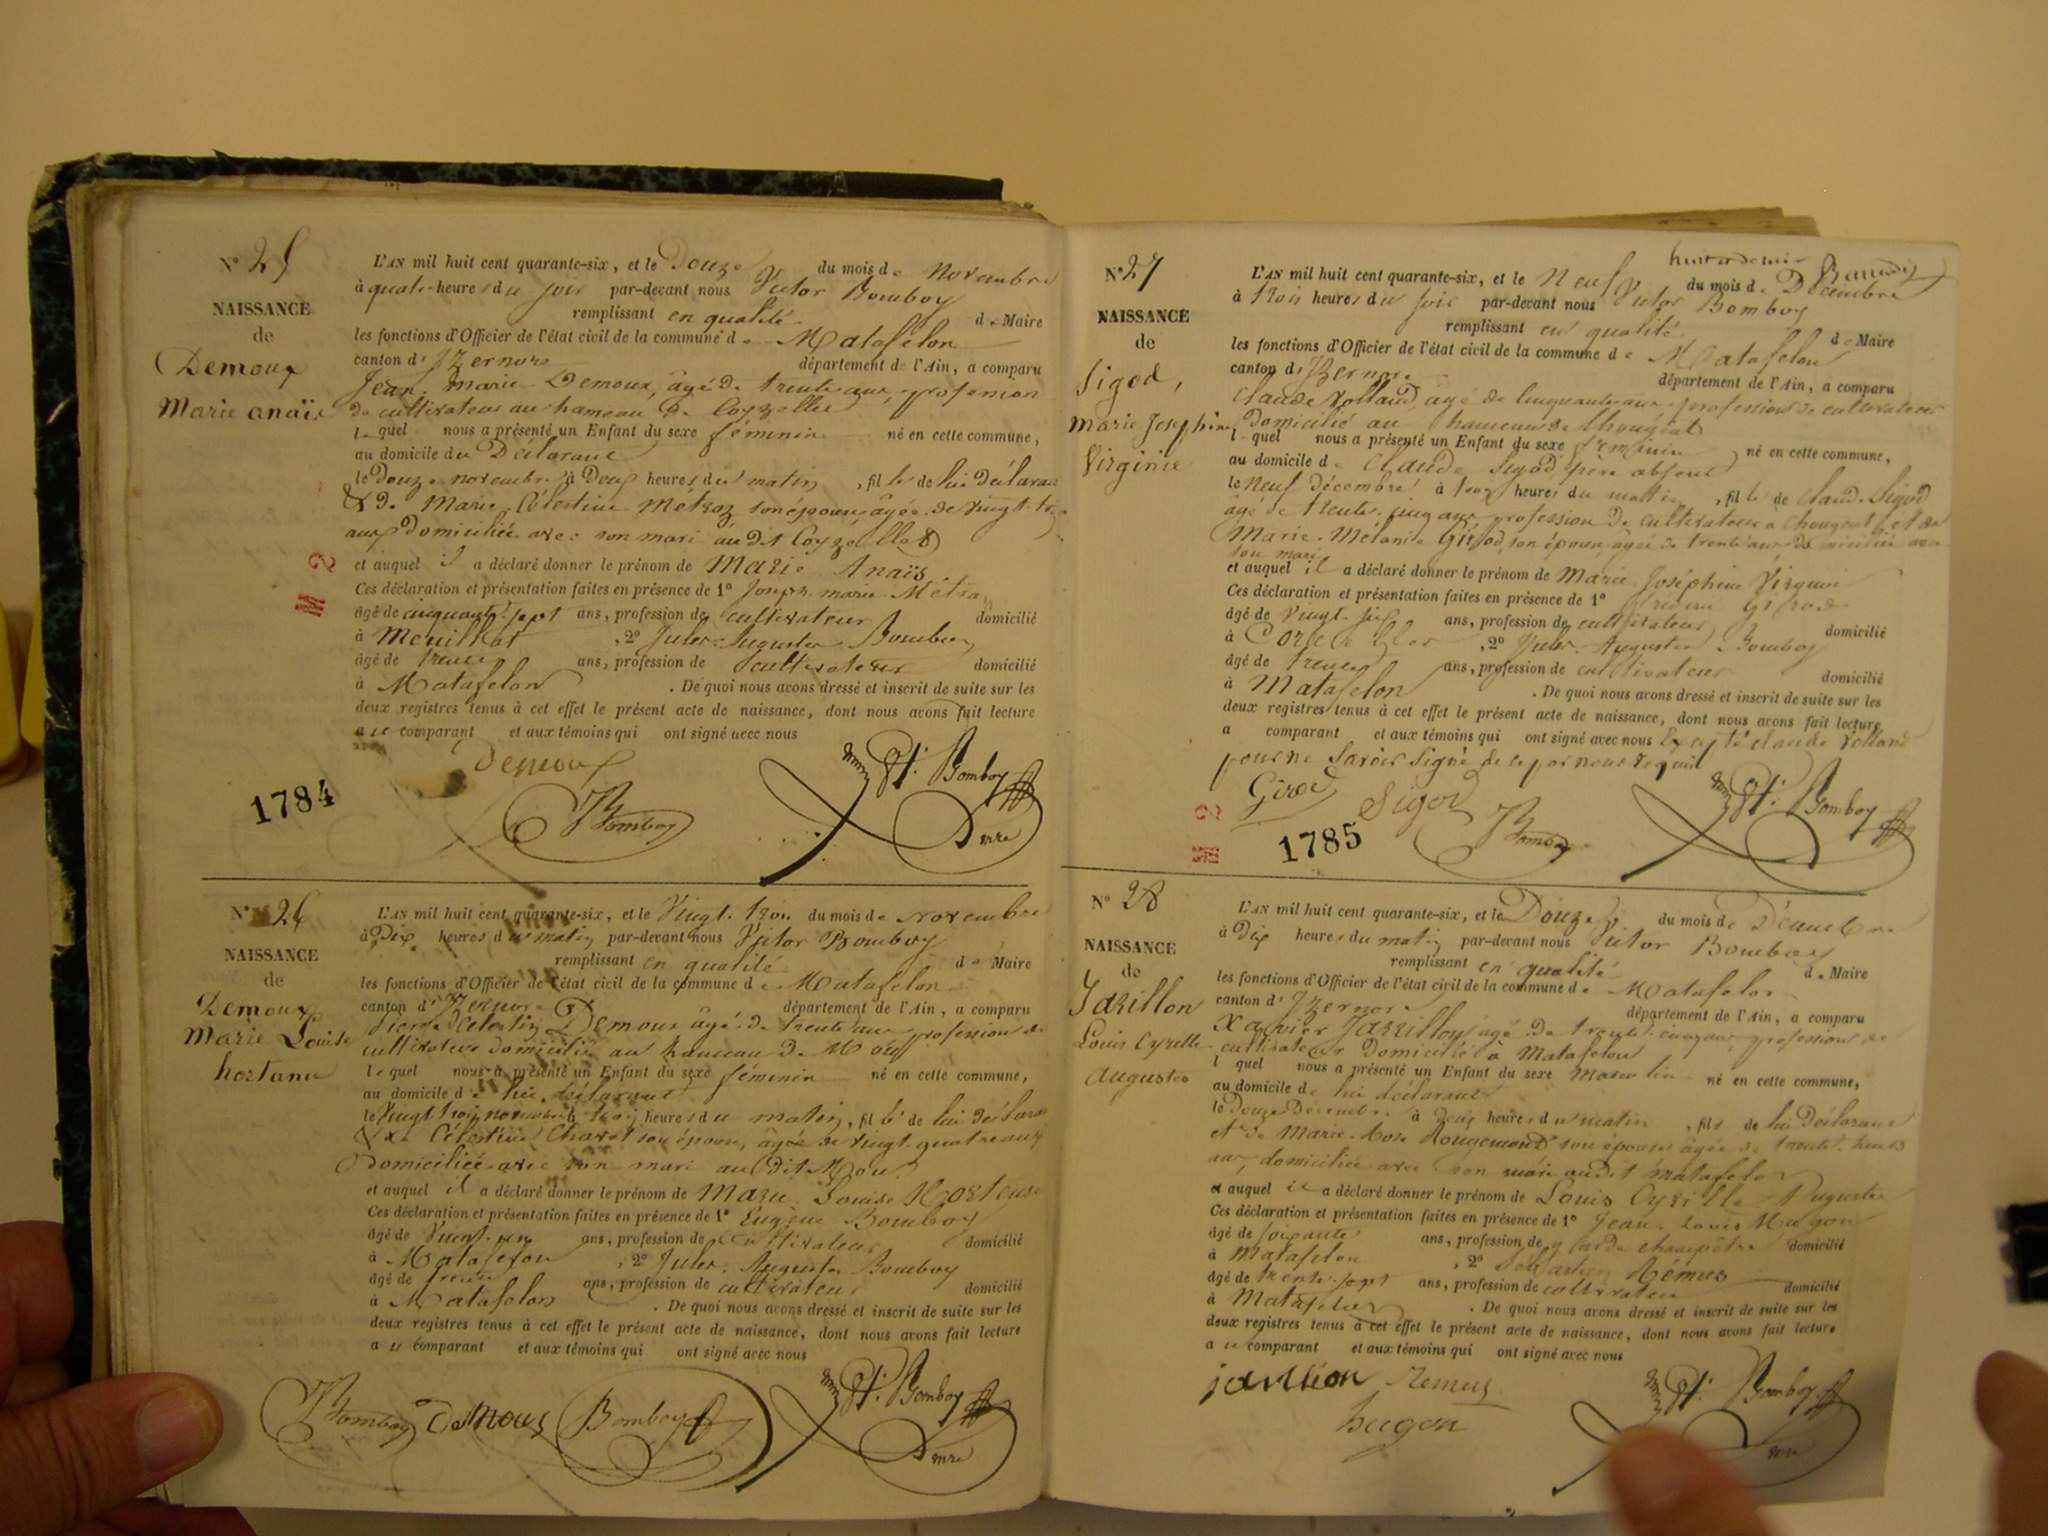 N° 25
NAISSANCE
de
Demoux
Marie anaïs
L'AN mil huit cent quarante-six, et le Douze du mois de Novembre
à quatre heures du soir par-devant nous Victor Bomboy
remplissant en qualité de Maire
les fonctions d'Officier de l'état civil de la commune de Matafelon
canton d'Izernore département de l'Ain, a comparu
Jean Marie Demoux, âgé de trente ans, profession
de cultivateur au hameau de Coyzelles
lequel nous a présenté un Enfant du sexe féminin né en cette commune,
au domicile du Déclarant
le douze novembre à Deux heures du matin, fille de lui déclarant
& de Marie Célestine Métroz son épouse, âgée de vingt
ans domiciliée avec son mari au dit Coyzelles
et auquel il a déclaré donner le prénom de Marie Anaïs
Ces déclaration et présentation faites en présence de 1° Joseph marie Métraz
âgé de cinquante sept ans, profession de cultivateur domicilié
à , 2° Jules Auguste Bomboy
âgé de trente ans, profession de cultivateur domicilié
à Matafelon . De quoi nous avons dressé et inscrit de suite sur les
deux registres tenus à cet effet le présent acte de naissance, dont nous avons fait lecture
au comparant et aux témoins qui ont signé avec nous
Demoux
Bomboy
Vr. Bomboy
mre
1784
N° 26
NAISSANCE
de
Demoux
Marie Louise
hortanse
L'AN mil huit cent quarante-six, et le Vingt trois du mois de Novembre
à Dix heures du matin par-devant nous Victor Bomboy
remplissant en qualité de Maire
les fonctions d'Officier de l'état civil de la commune de Matafelon
canton d'Izernore département de l'Ain, a comparu
Pierre Célestin Demoux âgé de trente ans profession de
cultivateur domicilié au hameau de Moux
lequel nous a présenté un Enfant du sexe féminin né en cette commune,
au domicile de lui déclarant
le Vingt trois novembre à trois heures du matin, fille de lui déclarant
& de Célestine Charvet son épouse, âgée de vingt quatre ans
domiciliée avec son mari au dit Moux
et auquel il a déclaré donner le prénom de Marie Louise Hortense
Ces déclaration et présentation faites en présence de 1° Eugène Bomboy
âgé de Vingt un ans, profession de cultivateur domicilié
à Matafelon , 2° Jules Auguste Bomboy
âgé de trente ans, profession de cultivateur domicilié
à Matafelon . De quoi nous avons dressé et inscrit de suite sur les
deux registres tenus à cet effet le présent acte de naissance, dont nous avons fait lecture
au comparant et aux témoins qui ont signé avec nous
Bomboy Demoux Bomboy Vr. Bomboy
mre
N° 27
NAISSANCE
de
Sigod,
Marie Josephine
Virginie
L'AN mil huit cent quarante-six, et le Neuf du mois de Décembre
à trois heures du soir par-devant nous Victor Bomboy
remplissant en qualité de Maire
les fonctions d'Officier de l'état civil de la commune de Matafelon
canton d'Izernore département de l'Ain, a comparu
Claude Volland, âgé de cinquante ans profession de cultivateur
domicilié au hameau de Chougeat
lequel nous a présenté un Enfant du sexe féminin né en cette commune,
au domicile de Claude Sigod père absent
le neuf décembre à heures du matin, fille de Claude Sigod
âgé de trente cinq ans profession de cultivateur à Chougeat, et de
Marie Mélanie Girod, son épouse, âgée de trente ans domiciliée avec
son mari
et auquel il a déclaré donner le prénom de Marie Joséphine Virginie
Ces déclaration et présentation faites en présence de 1° Girod
âgé de Vingt six ans, profession de cultivateur domicilié
à , 2° Jules Auguste Bomboy
âgé de trente ans, profession de cultivateur domicilié
à Matafelon . De quoi nous avons dressé et inscrit de suite sur les
deux registres tenus à cet effet le présent acte de naissance, dont nous avons fait lecture
a comparant et aux témoins qui ont signé avec nous Excepté Claude Volland
pour ne savoir signé de ce par nous requis
Girod Sigod Bomboy Vr. Bomboy
1785
N° 28
NAISSANCE
de
Jarillon
Louis Cyrille
Auguste
L'AN mil huit cent quarante-six, et le Douze du mois de Décembre
à Dix heures du matin par-devant nous Victor Bomboy
remplissant en qualité de Maire
les fonctions d'Officier de l'état civil de la commune de Matafelon
canton d'Izernore département de l'Ain, a comparu
Xavier Jarrillon âgé de trente cinq ans, profession de
cultivateur domicilié à Matafelon
lequel nous a présenté un Enfant du sexe Masculin né en cette commune,
au domicile de lui déclarant
le douze Décembre à Deux heures du matin, fils de lui Déclarant
et de Marie Rose Rougemont son épouse âgée de trente
ans, domiciliée avec son mari audit Matafelon
et auquel il a déclaré donner le prénom de Louis Cyrille Auguste
Ces déclaration et présentation faites en présence de 1° Jean Louis Hugon
âgé de soixante ans, profession de garde champêtre domicilié
à Matafelon , 2° Sébastien Rémus
âgé de trente sept ans, profession de cultivateur domicilié
à Matafelon . De quoi nous avons dressé et inscrit de suite sur les
deux registres tenus à cet effet le présent acte de naissance, dont nous avons fait lecture
au comparant et aux témoins qui ont signé avec nous
jarillion Remus
hugon
Vr. Bomboy
mre